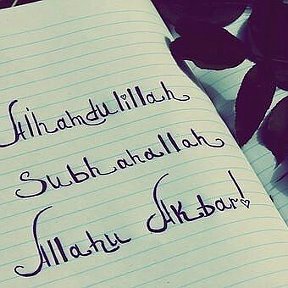 Alhamdulillah
Subhanallah
Allahu Akbar!